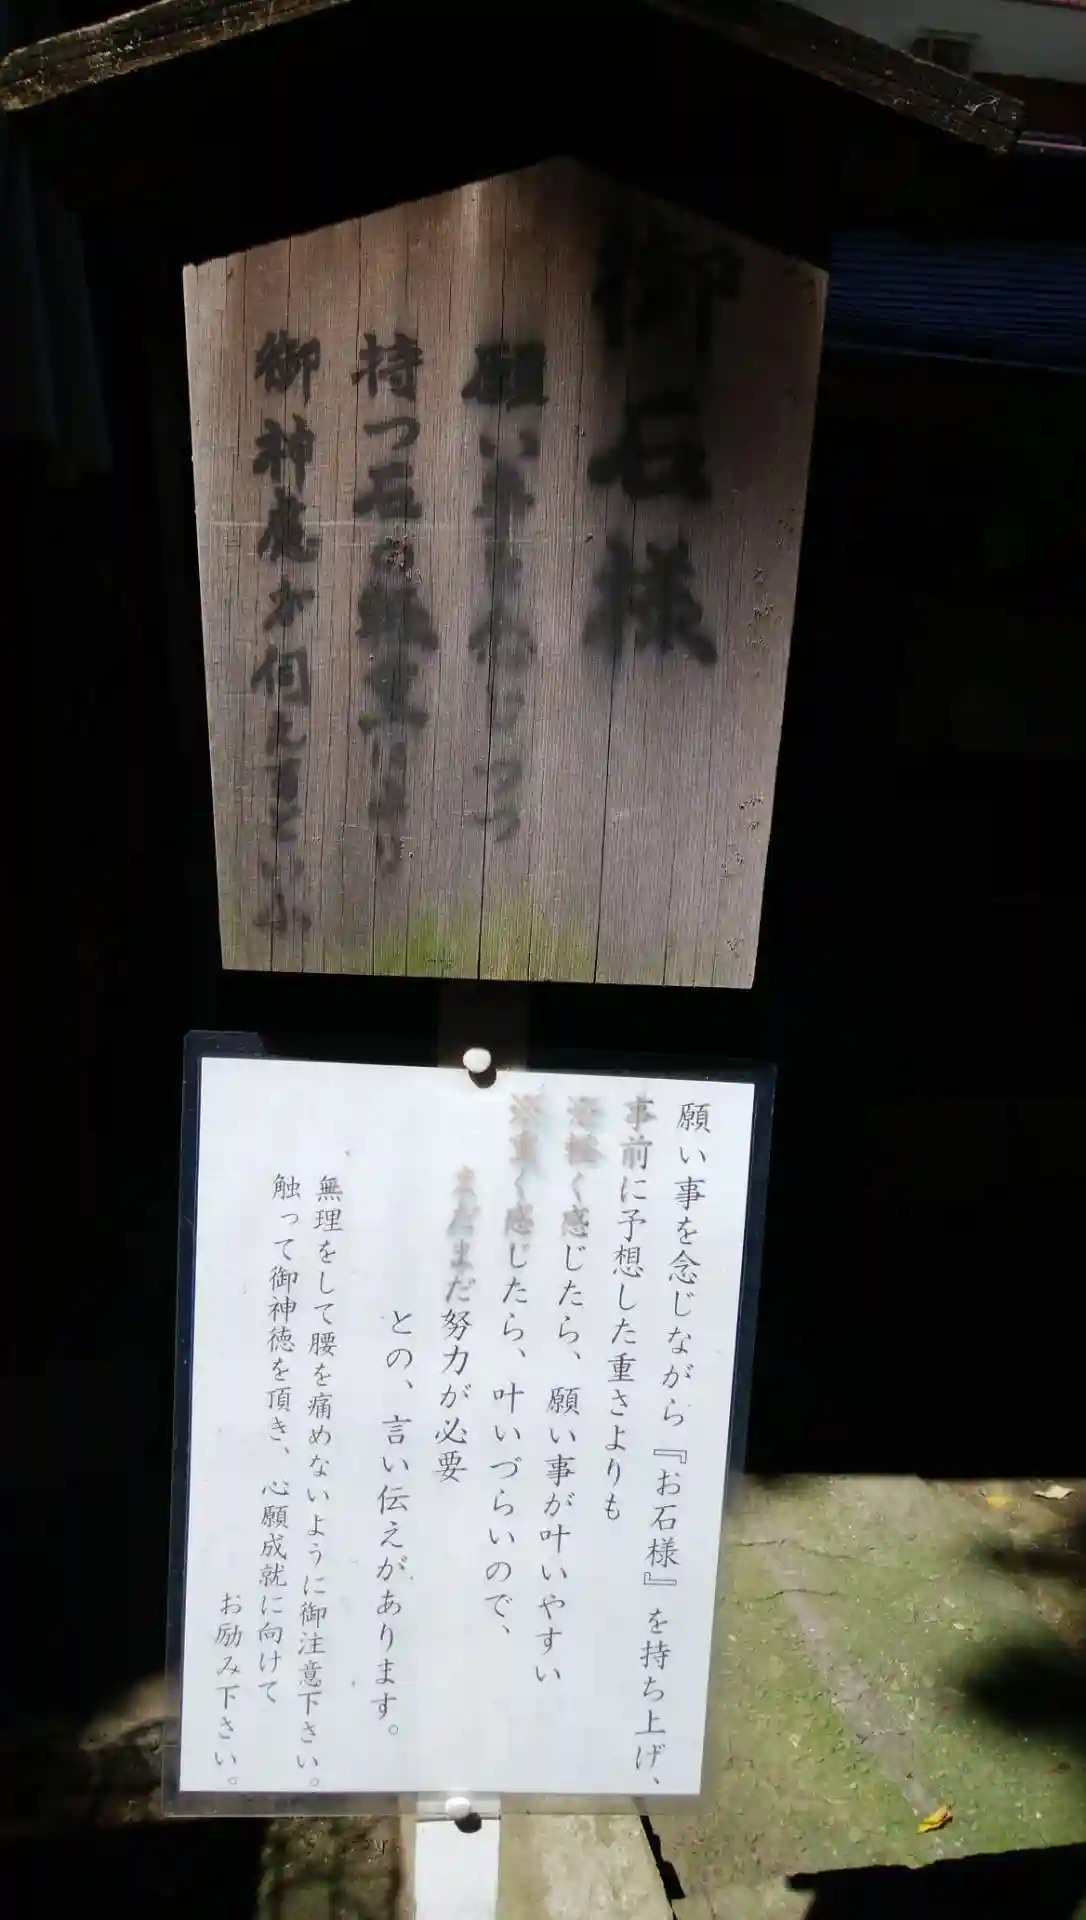 御石様
願い事を念じつつ
持つ石の軽重により
御神慮が伺えすという
願い事を念じながら『お石様』を持ち上げ、
事前に予想した重さよりも
軽く感じたら、願い事が叶いやすい
重く感じたら、叶いづらいので、
まだまだ努力が必要
との、言い伝えがあります。
無理をして腰を痛めないように御注意下さい。
触って御神徳を頂き、心願成就に向けて
お励み下さい。